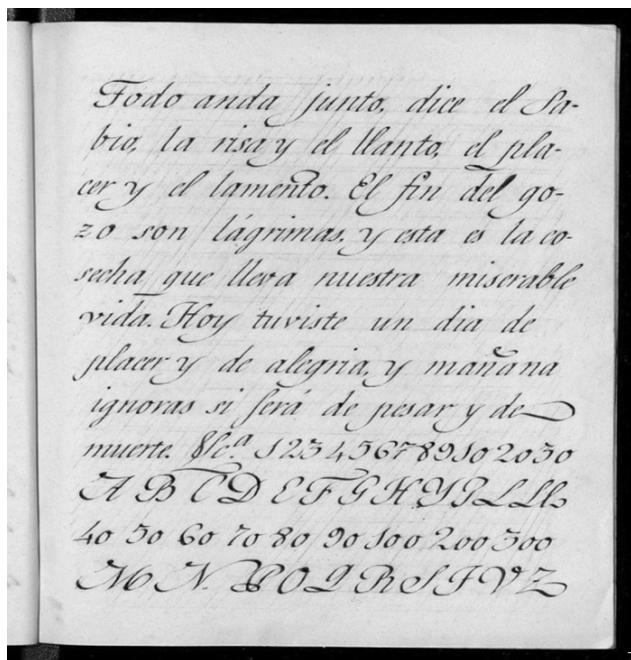 Todo anda junto, dice el Sa-
bio, la risa y el llanto, el pla-
cer y el lamento. El fin del go-
zo son lágrimas, y esta es la co-
secha que lleva nuestra miserable
vida. Hoy tuviste un dia de
placer y de alegria, y mañana
ignoras si será de pesar y de
muerte. &c.ª 1 2 3 4 5 6 7 8 9 10 20 30
A B C D E F G H Y J L Ll
40 50 60 70 80 90 100 200 300
M N P O Q R S T V Z